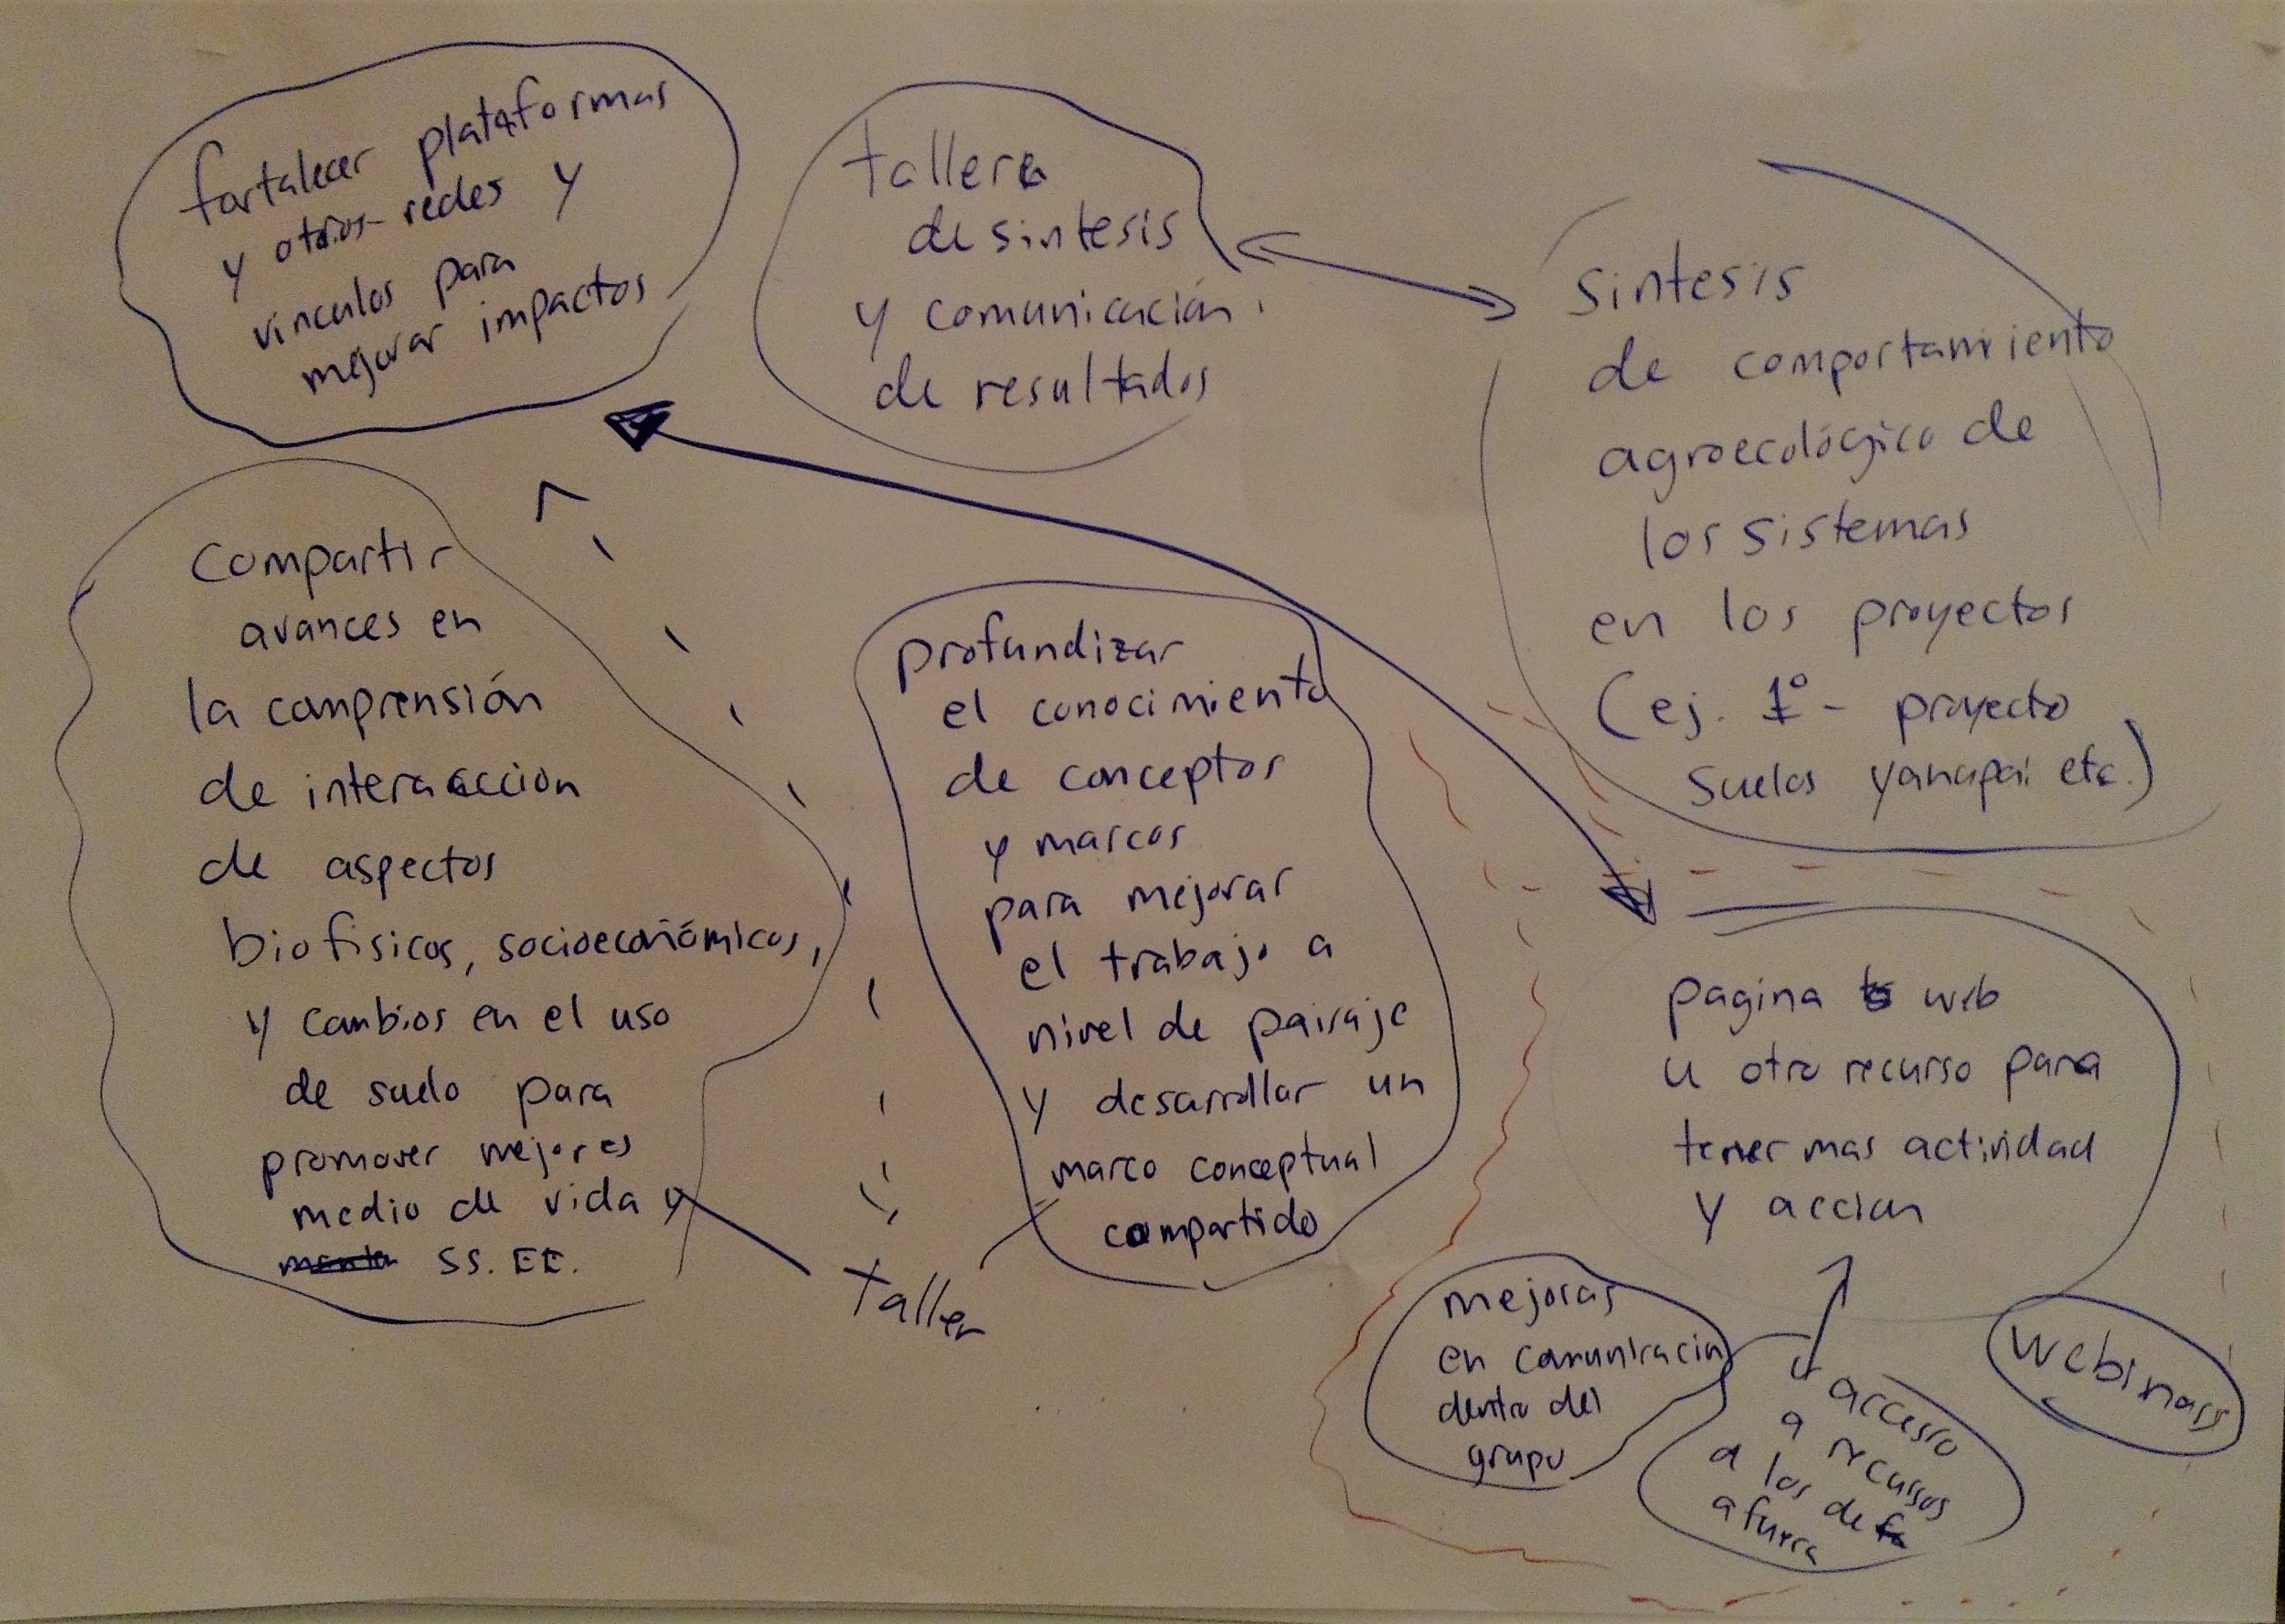 fortalecer plataformas
y otros redes y
vinculos para
mejorar impactos
tallere
de sintesis
y comunicación
de resultados
Sintesis
de comportamiento
agroecológico de
los sistemas
en los proyectos
(ej. 1º - proyecto
suelos yanapai etc.)
Compartir
avances en
la comprensión
de interacción
de aspectos
biofisicos, socioeconómicos,
y cambios en el uso
de suelo para
promover mejores
medio de vida y
SS. EE.
profundizar
el conocimiento
de conceptos
y marcos
para mejorar
el trabajo a
nivel de paisaje
y desarrollar un
marco conceptual
compartido
Taller
pagina web
u otro recurso para
tener mas actividad
y accion
mejoras
en comunicacin
dentro del
grupo
accesso
a recursos
a los de
afuera
Webinars